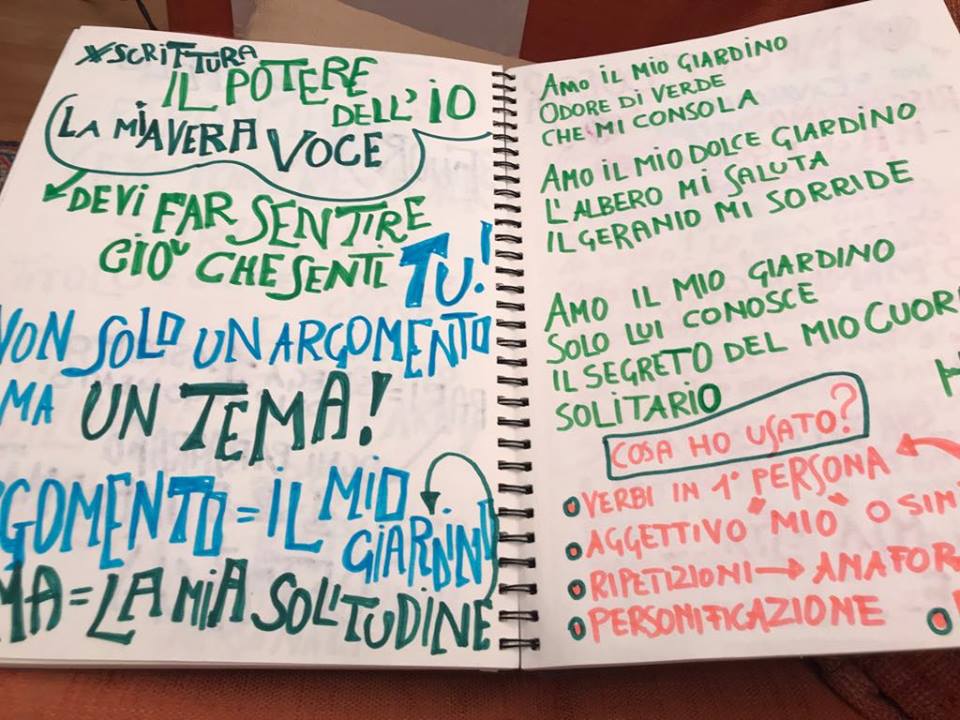 SCRITTURA
IL POTERE
DELL'IO
LA MIA VERA VOCE
DEVI FAR SENTIRE
CIÒ CHE SENTI TU!
NON SOLO UN ARGOMENTO
MA UN TEMA!
GOMENTO = IL MIO
GIARDINO
MA = LA MIA SOLITUDINE
AMO IL MIO GIARDINO
ODORE DI VERDE
CHE MI CONSOLA
AMO IL MIO DOLCE GIARDINO
L'ALBERO MI SALUTA
IL GERANIO MI SORRIDE
AMO IL MIO GIARDINO
SOLO LUI CONOSCE
IL SEGRETO DEL MIO CUOR
SOLITARIO
COSA HO USATO?
VERBI IN 1° PERSONA
AGGETTIVO "MIO" O SIMI
RIPETIZIONI → ANAFOR
PERSONIFICAZIONE